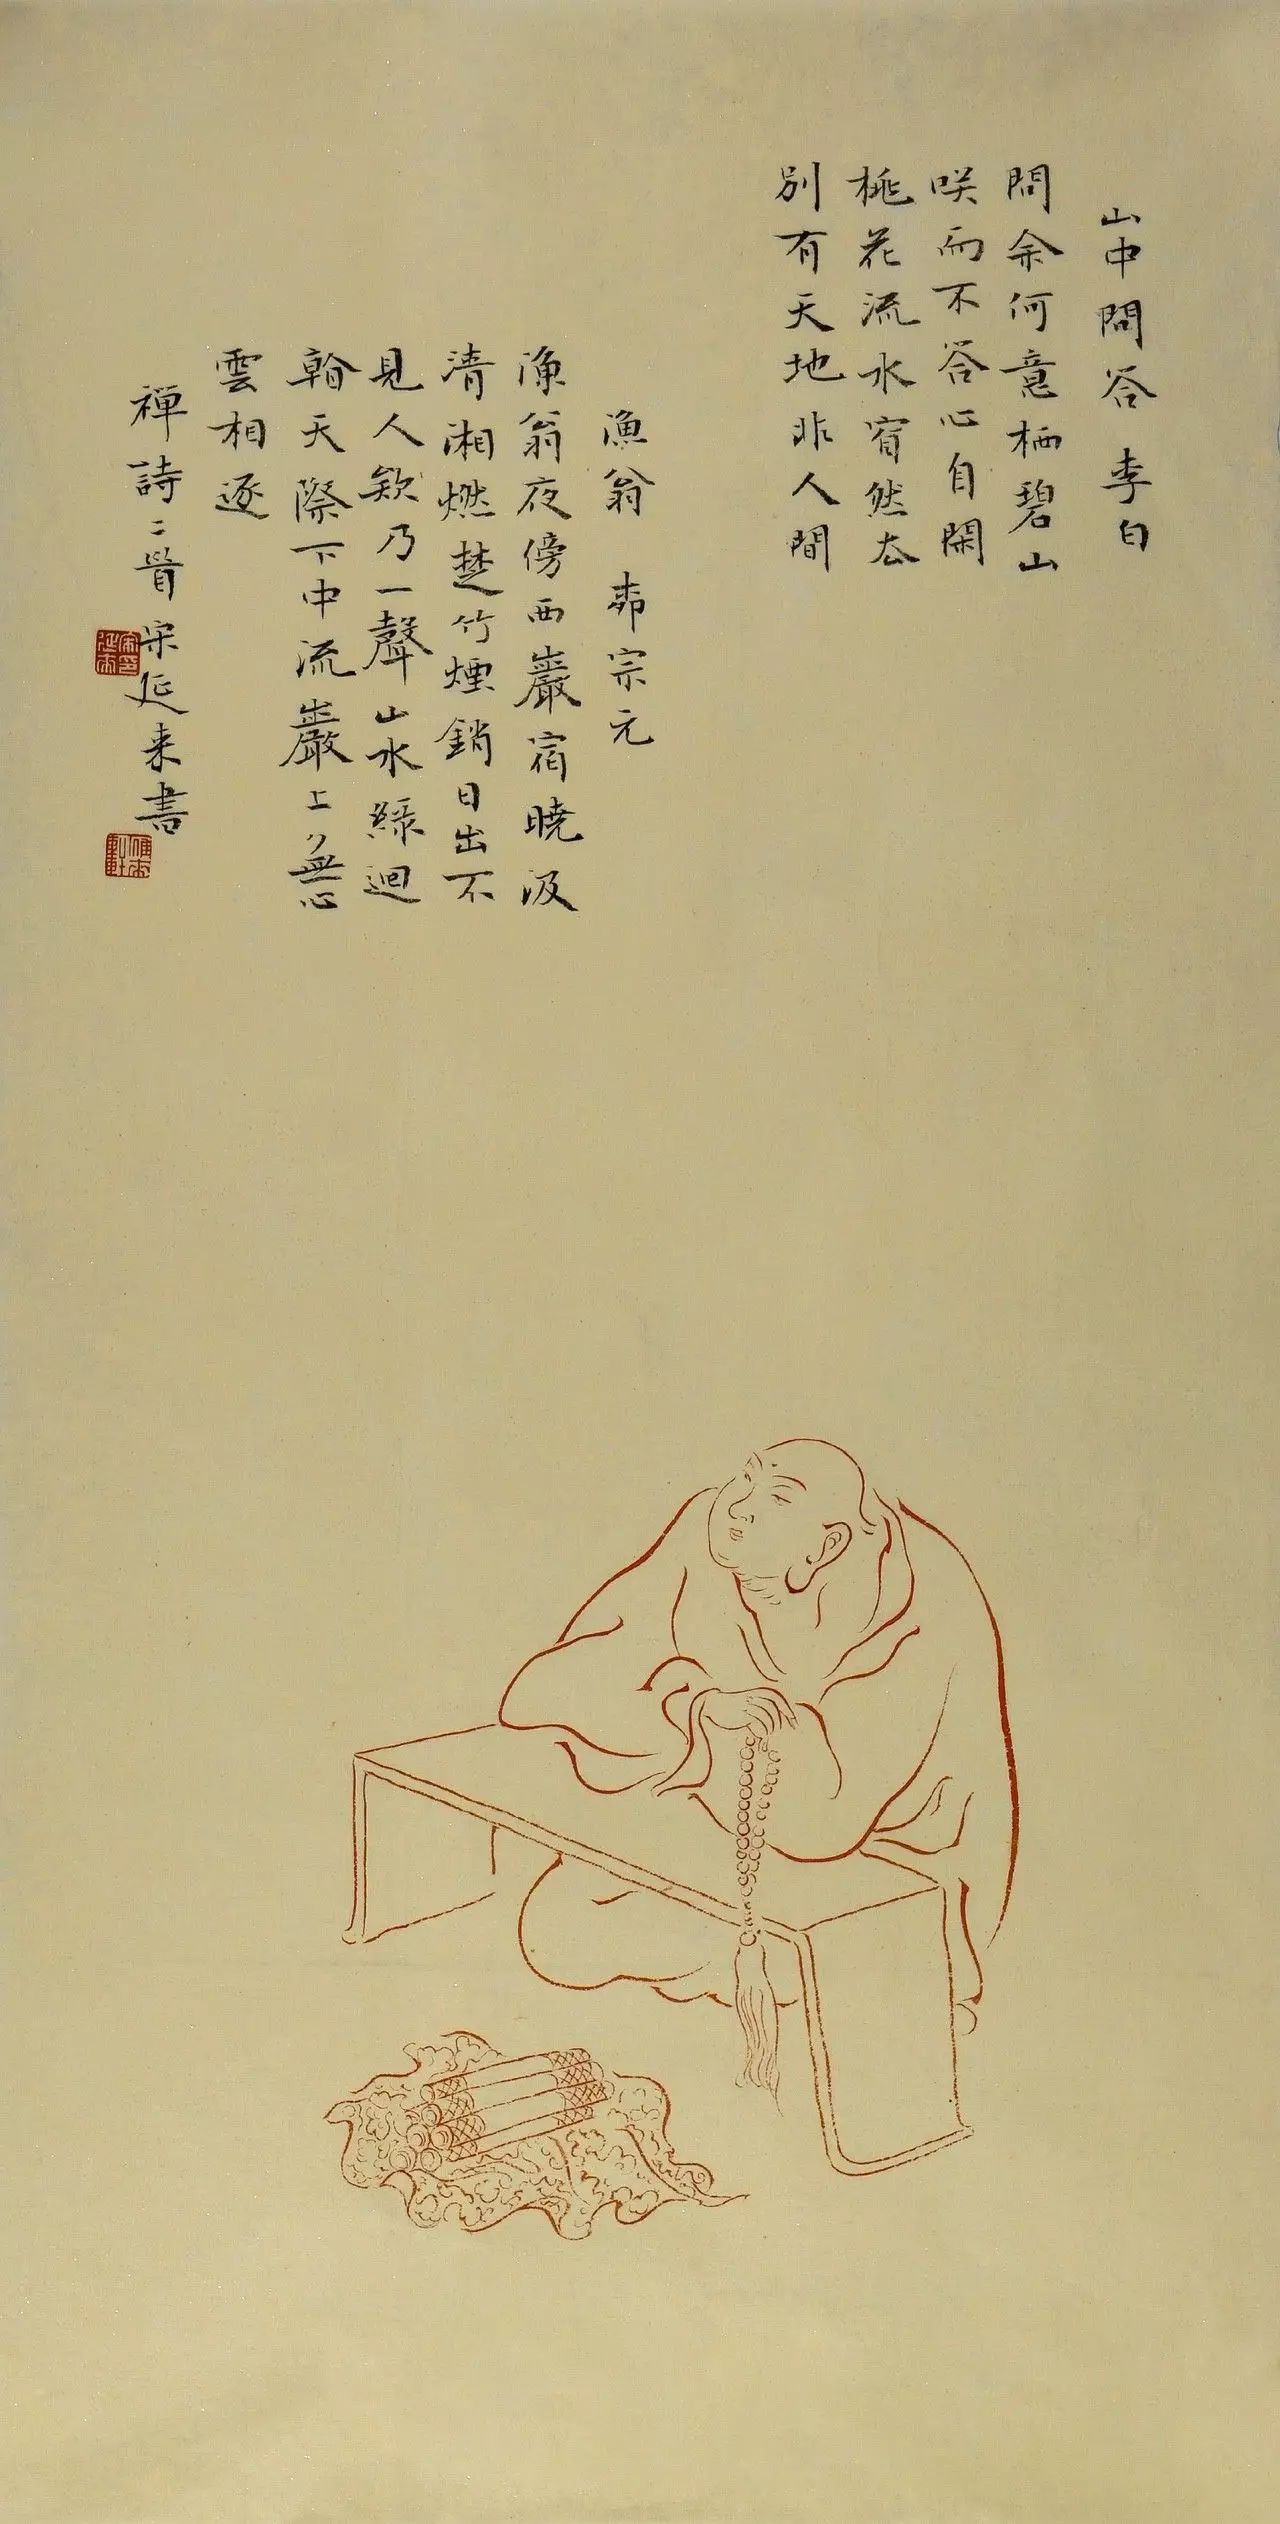 山中問答 李白
問余何意栖碧山
咲而不答心自閑
桃花流水窅然去
別有天地非人間
漁翁 柳宗元
漁翁夜傍西巖宿曉汲
清湘燃楚竹煙銷日出不
見人欸乃一聲山水綠迴
看天際下中流巖上無心
雲相逐
禪詩二首宋延来書